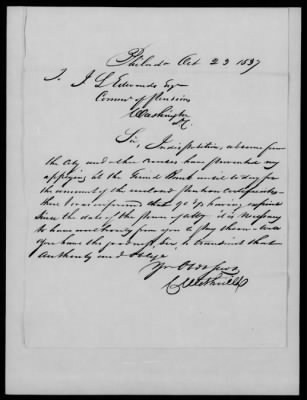 Philada Oct 23 1837
To J L Edwards Esq
Commr of Pensions
Washington
Sir, Indisposition, absence from
the City and other causes have prevented my
applying at the Bank until to day for
the amount of the enclosed Pension Certificates
then I was informed that having expired
since the date of the power of atty it is necessary
to have authority from you to pay them - Will
you have the goodness, Sir, to transmit that
Authority and oblige
Yr Obt Servt